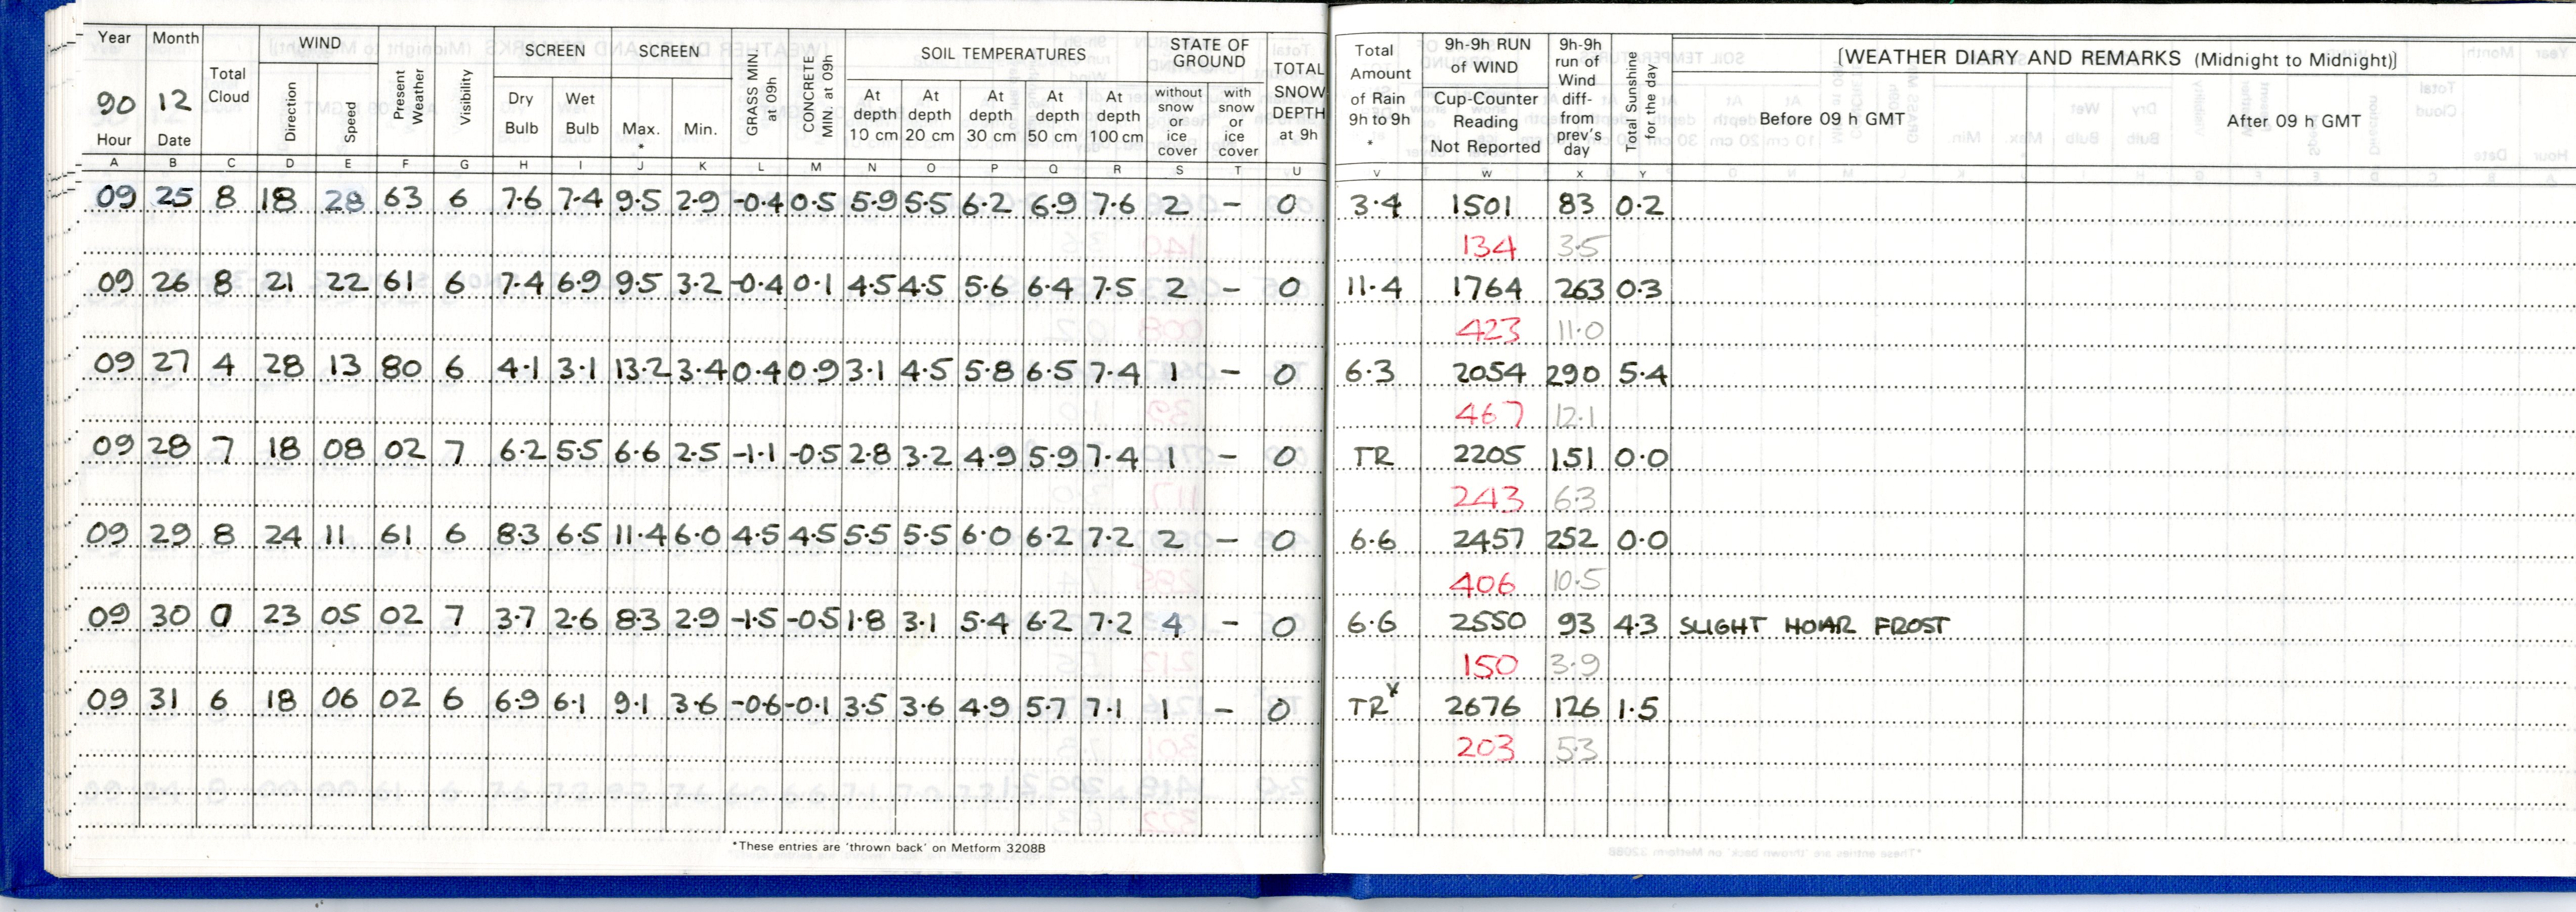 Year Month Total Cloud WIND Present Weather Visibility SCREEN SCREEN GRASS MIN. at 09h CONCRETE MIN. at 09h SOIL TEMPERATURES STATE OF GROUND TOTAL SNOW DEPTH at 9h Total Amount of Rain 9h to 9h * 9h-9h RUN of WIND 9h-9h run of Wind diff- from prev's day Total Sunshine for the day [WEATHER DIARY AND REMARKS (Midnight to Midnight)]
90 12 Direction Speed Dry Bulb Wet Bulb Max. * Min. At depth 10 cm At depth 20 cm At depth 30 cm At depth 50 cm At depth 100 cm without snow or ice cover with snow or ice cover Cup-Counter Reading Not Reported Before 09 h GMT After 09 h GMT
Hour Date
A B C D E F G H I J K L M N O P Q R S T U V W X Y
09 25 8 18 28 63 6 7.6 7.4 9.5 2.9 -0.4 0.5 5.9 5.5 6.2 6.9 7.6 2 - 0 3.4 1501 83 0.2
134 3.5
09 26 8 21 22 61 6 7.4 6.9 9.5 3.2 -0.4 0.1 4.5 4.5 5.6 6.4 7.5 2 - 0 11.4 1764 263 0.3
423 11.0
09 27 4 28 13 80 6 4.1 3.1 13.2 3.4 0.4 0.9 3.1 4.5 5.8 6.5 7.4 1 - 0 6.3 2054 290 5.4
467 12.1
09 28 7 18 08 02 7 6.2 5.5 6.6 2.5 -1.1 -0.5 2.8 3.2 4.9 5.9 7.4 1 - 0 TR 2205 151 0.0
243 6.3
09 29 8 24 11 61 6 8.3 6.5 11.4 6.0 4.5 4.5 5.5 5.5 6.0 6.2 7.2 2 - 0 6.6 2457 252 0.0
406 10.5
09 30 0 23 05 02 7 3.7 2.6 8.3 2.9 -1.5 -0.5 1.8 3.1 5.4 6.2 7.2 4 - 0 6.6 2550 93 4.3 SLIGHT HOAR FROST
150 3.9
09 31 6 18 06 02 6 6.9 6.1 9.1 3.6 -0.6 -0.1 3.5 3.6 4.9 5.7 7.1 1 - 0 TR* 2676 126 1.5
203 5.3
*These entries are 'thrown back' on Metform 3208B